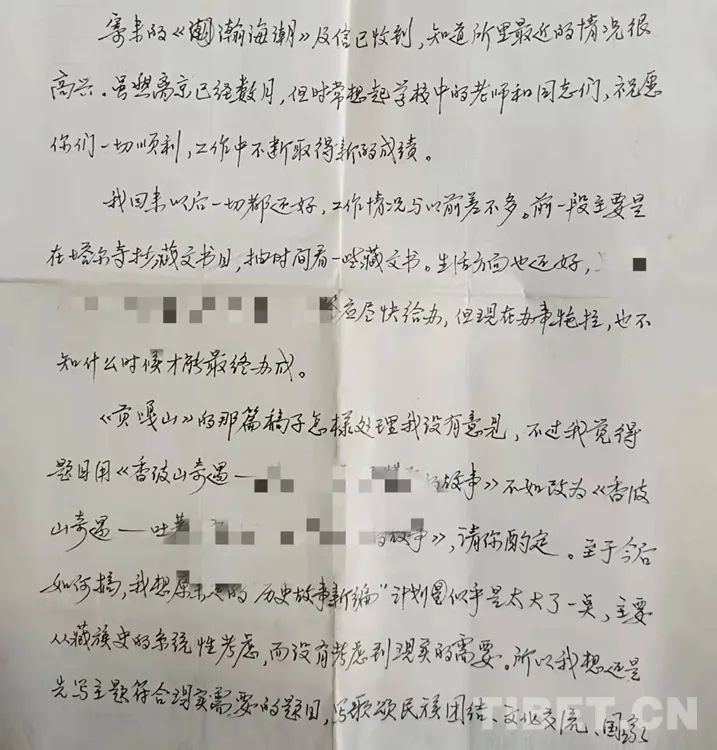 寄来的《瀚海潮》及信已收到,知道所里最近的情况很
高兴。虽然离京已经数月,但时常想起学校中的老师和同志们,祝愿
你们一切顺利,工作中不断取得新的成绩。
我回来以后一切都还好,工作情况与以前差不多。前一段主要是
在塔尔寺抄藏文书目,抽时间看一些藏文书。生活方面也还好,
应尽快给办,但现在办事拖拉,也不
知什么时候才能最终办成。
《贡嘎山》的那篇稿子怎样处理我没有意见,不过我觉得
题目用《香波山奇遇—故事》不如改为《香波
山奇遇—吐蕃故事》,请你酌定。至于今后
如何搞,我想原来的"历史故事新编"计划似乎是太大了一点,主要
从藏族史的系统性考虑,而没有考虑到现实的需要。所以我想还是
先写主题符合现实需要的题目,写歌颂民族团结、文化交流、国家
TIBET.CN